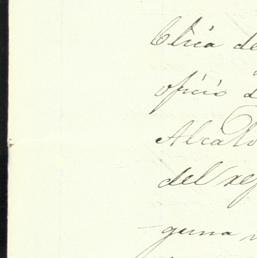 blica de
oficio d
Alcalo
del ref
guna